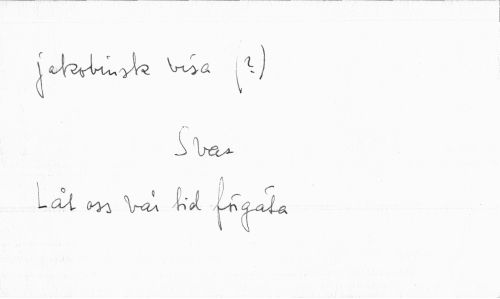 jakobinsk visa (?)
Svar
Låt oss vår tid förgäta